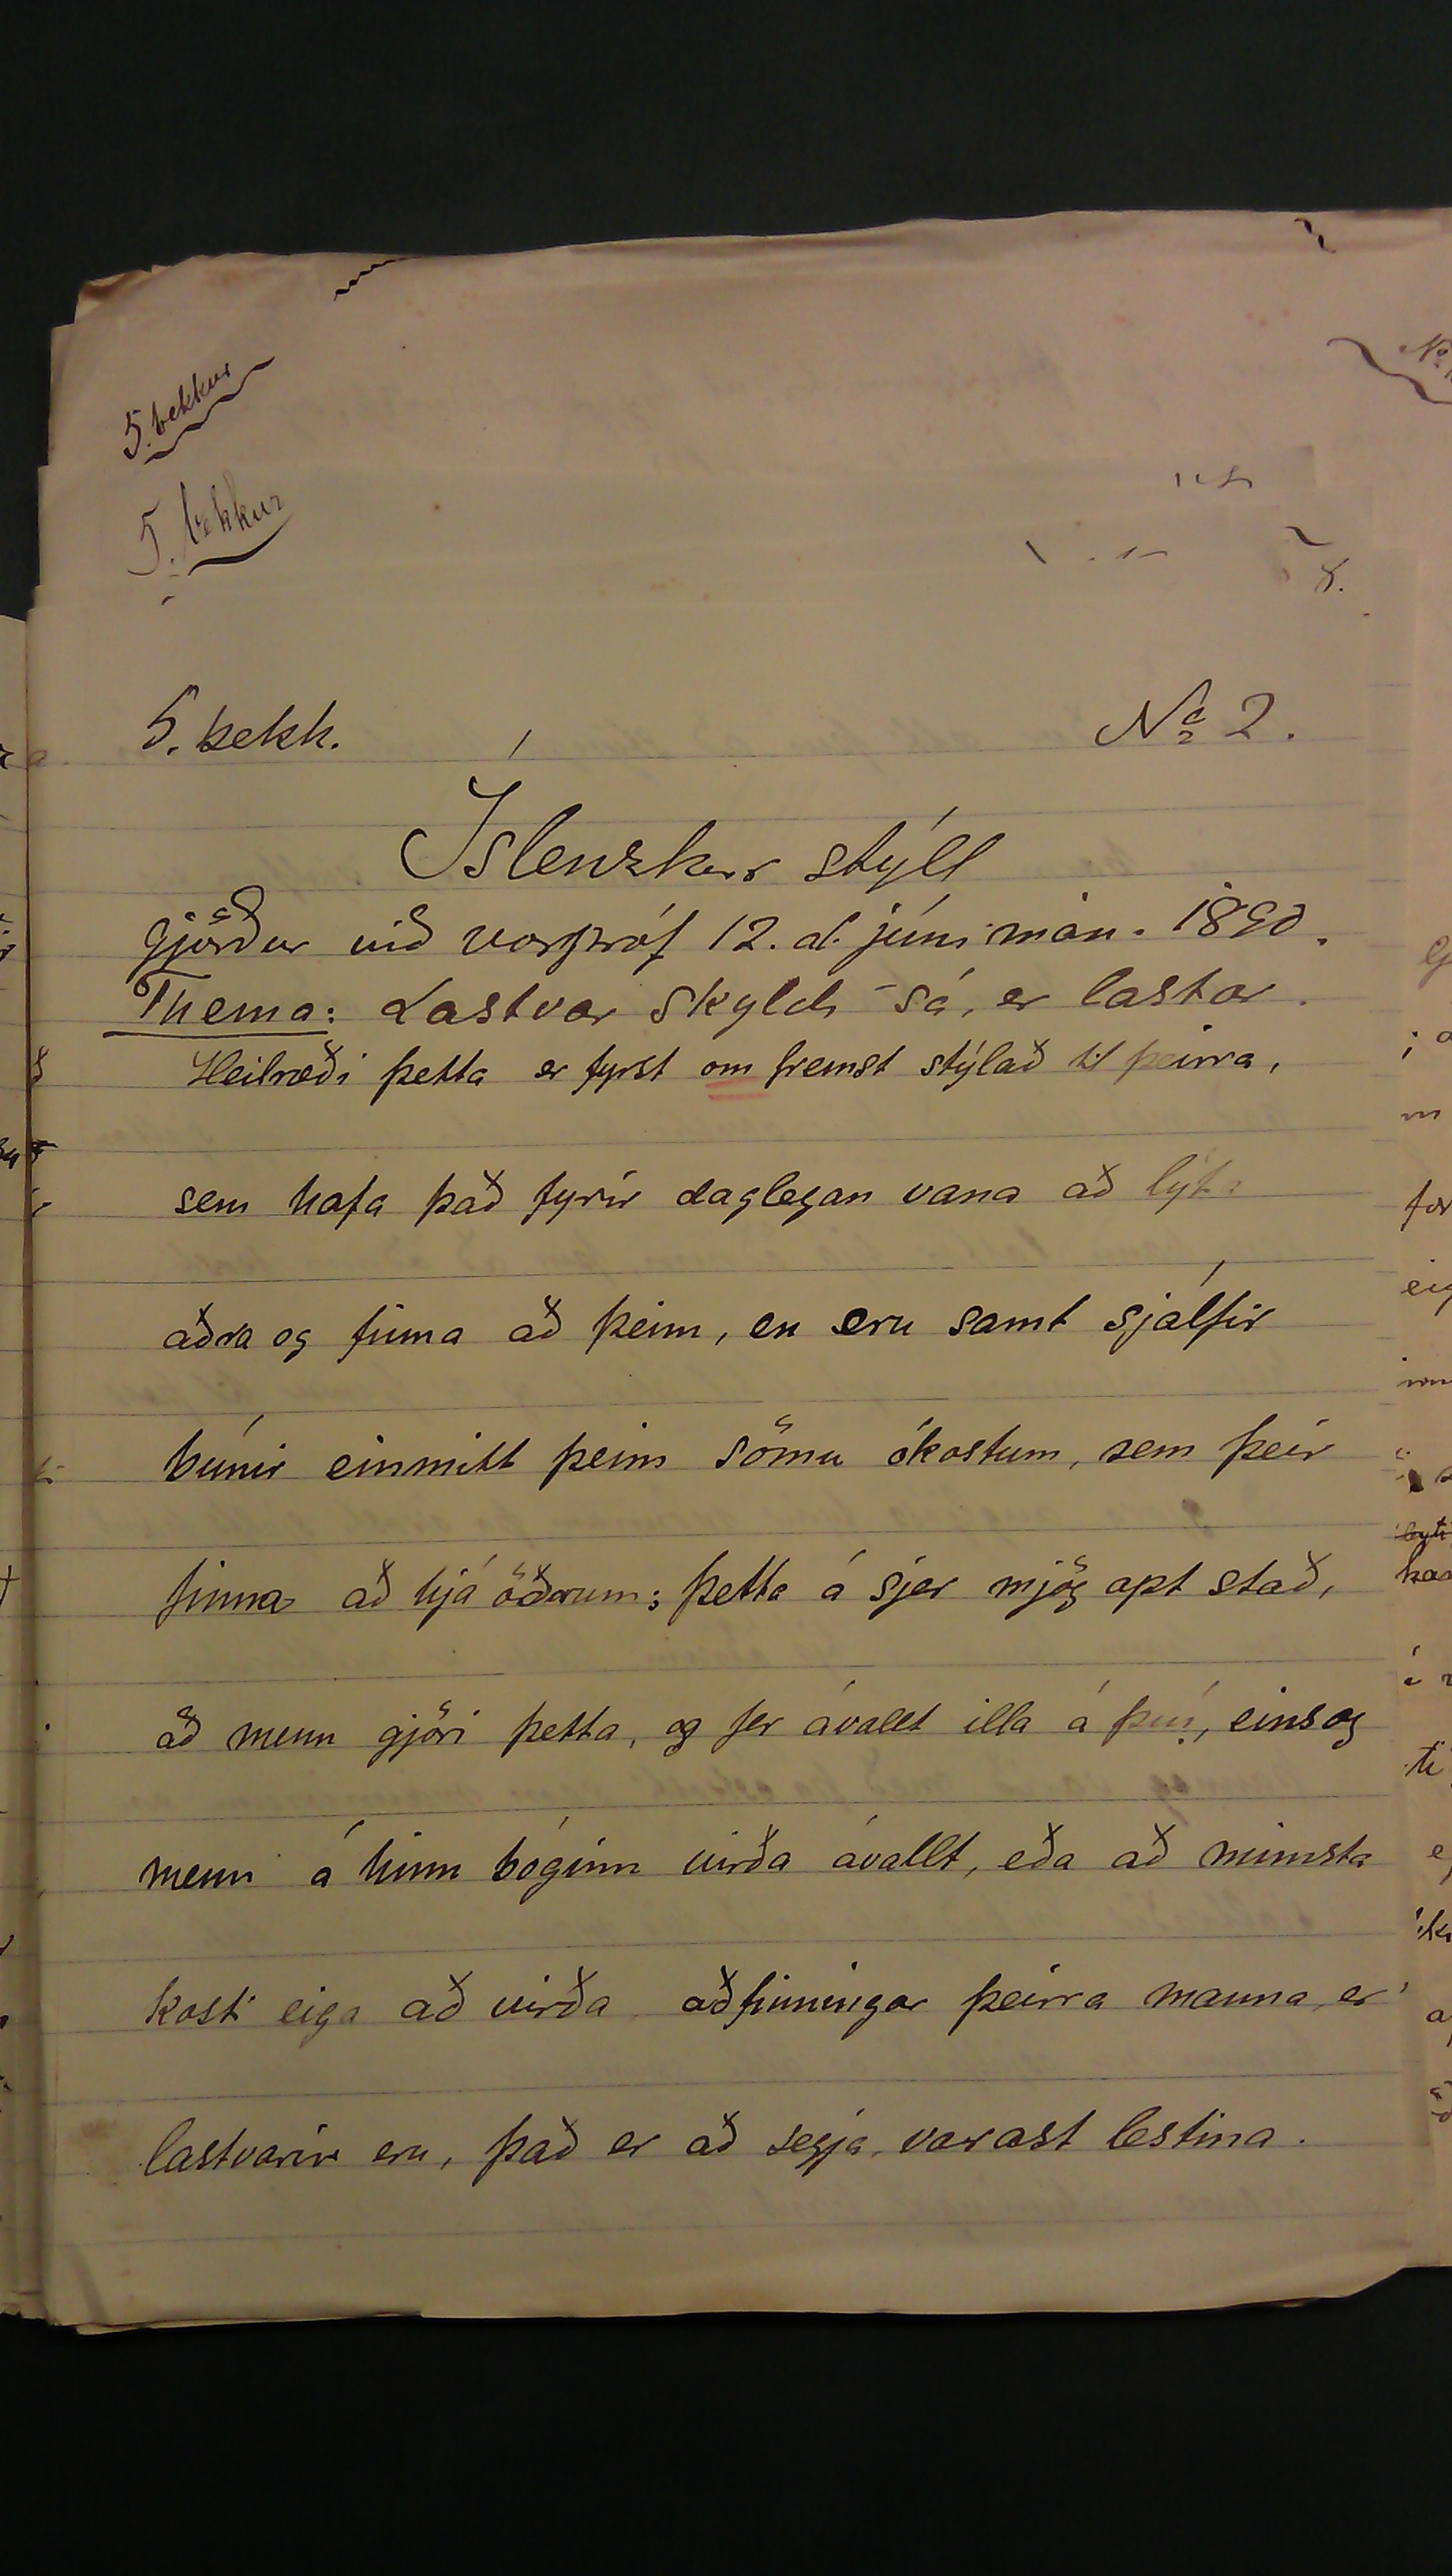 5. bekkur
5. bekkur
8.
5. bekk.
No 2.
Íslenzkur stýll
gjörður við vorpróf 12. d. júní mán. 1890.
Thema: Lastvar skyldi sá, er lastar.
Heilræði þetta er fyrst om fremst stýlað til þeirra,
sem hafa það fyrir daglegan vana að lýta
aðra og finna að þeim, en eru samt sjálfir
búnir einmitt þeim sömu ókostum, sem þeir
finna að hjá öðrum; þetta á sjer mjög opt stað,
að menn gjöri þetta, og fer ávallt illa á því, eins og
menn á hinn bóginn virða ávallt, eða að minnsta
kosti eiga að virða aðfinningar þeirra manna, er
lastvarir eru, það er að segja varast lestina.